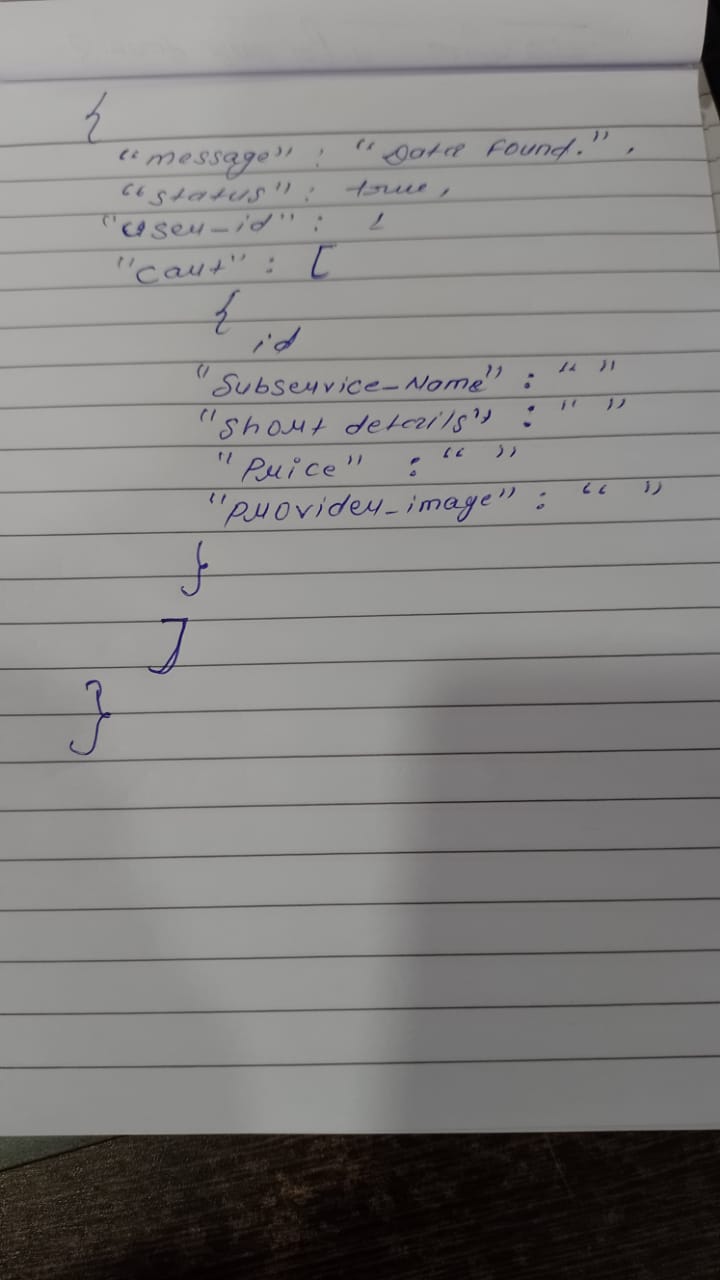 {
"message" : "Data Found.",
"status" : true,
"user_id" : 1
"cart" : [
{
id
"Subservice_Name" : " "
"Short details" : " "
"Price" : " "
"Provider_image" : " "
}
]
}